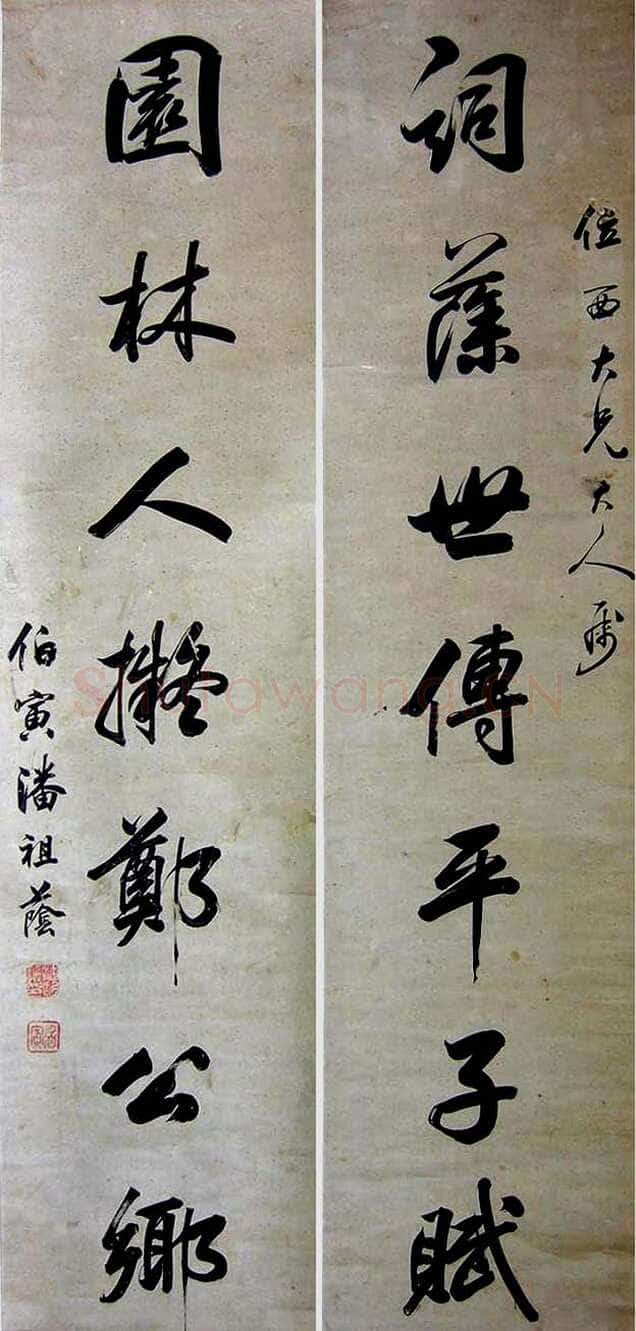 位西大兄大人屬
詞藻世傳平子賦
園林人擬鄭公鄉
伯寅潘祖蔭
Shufawang.CN